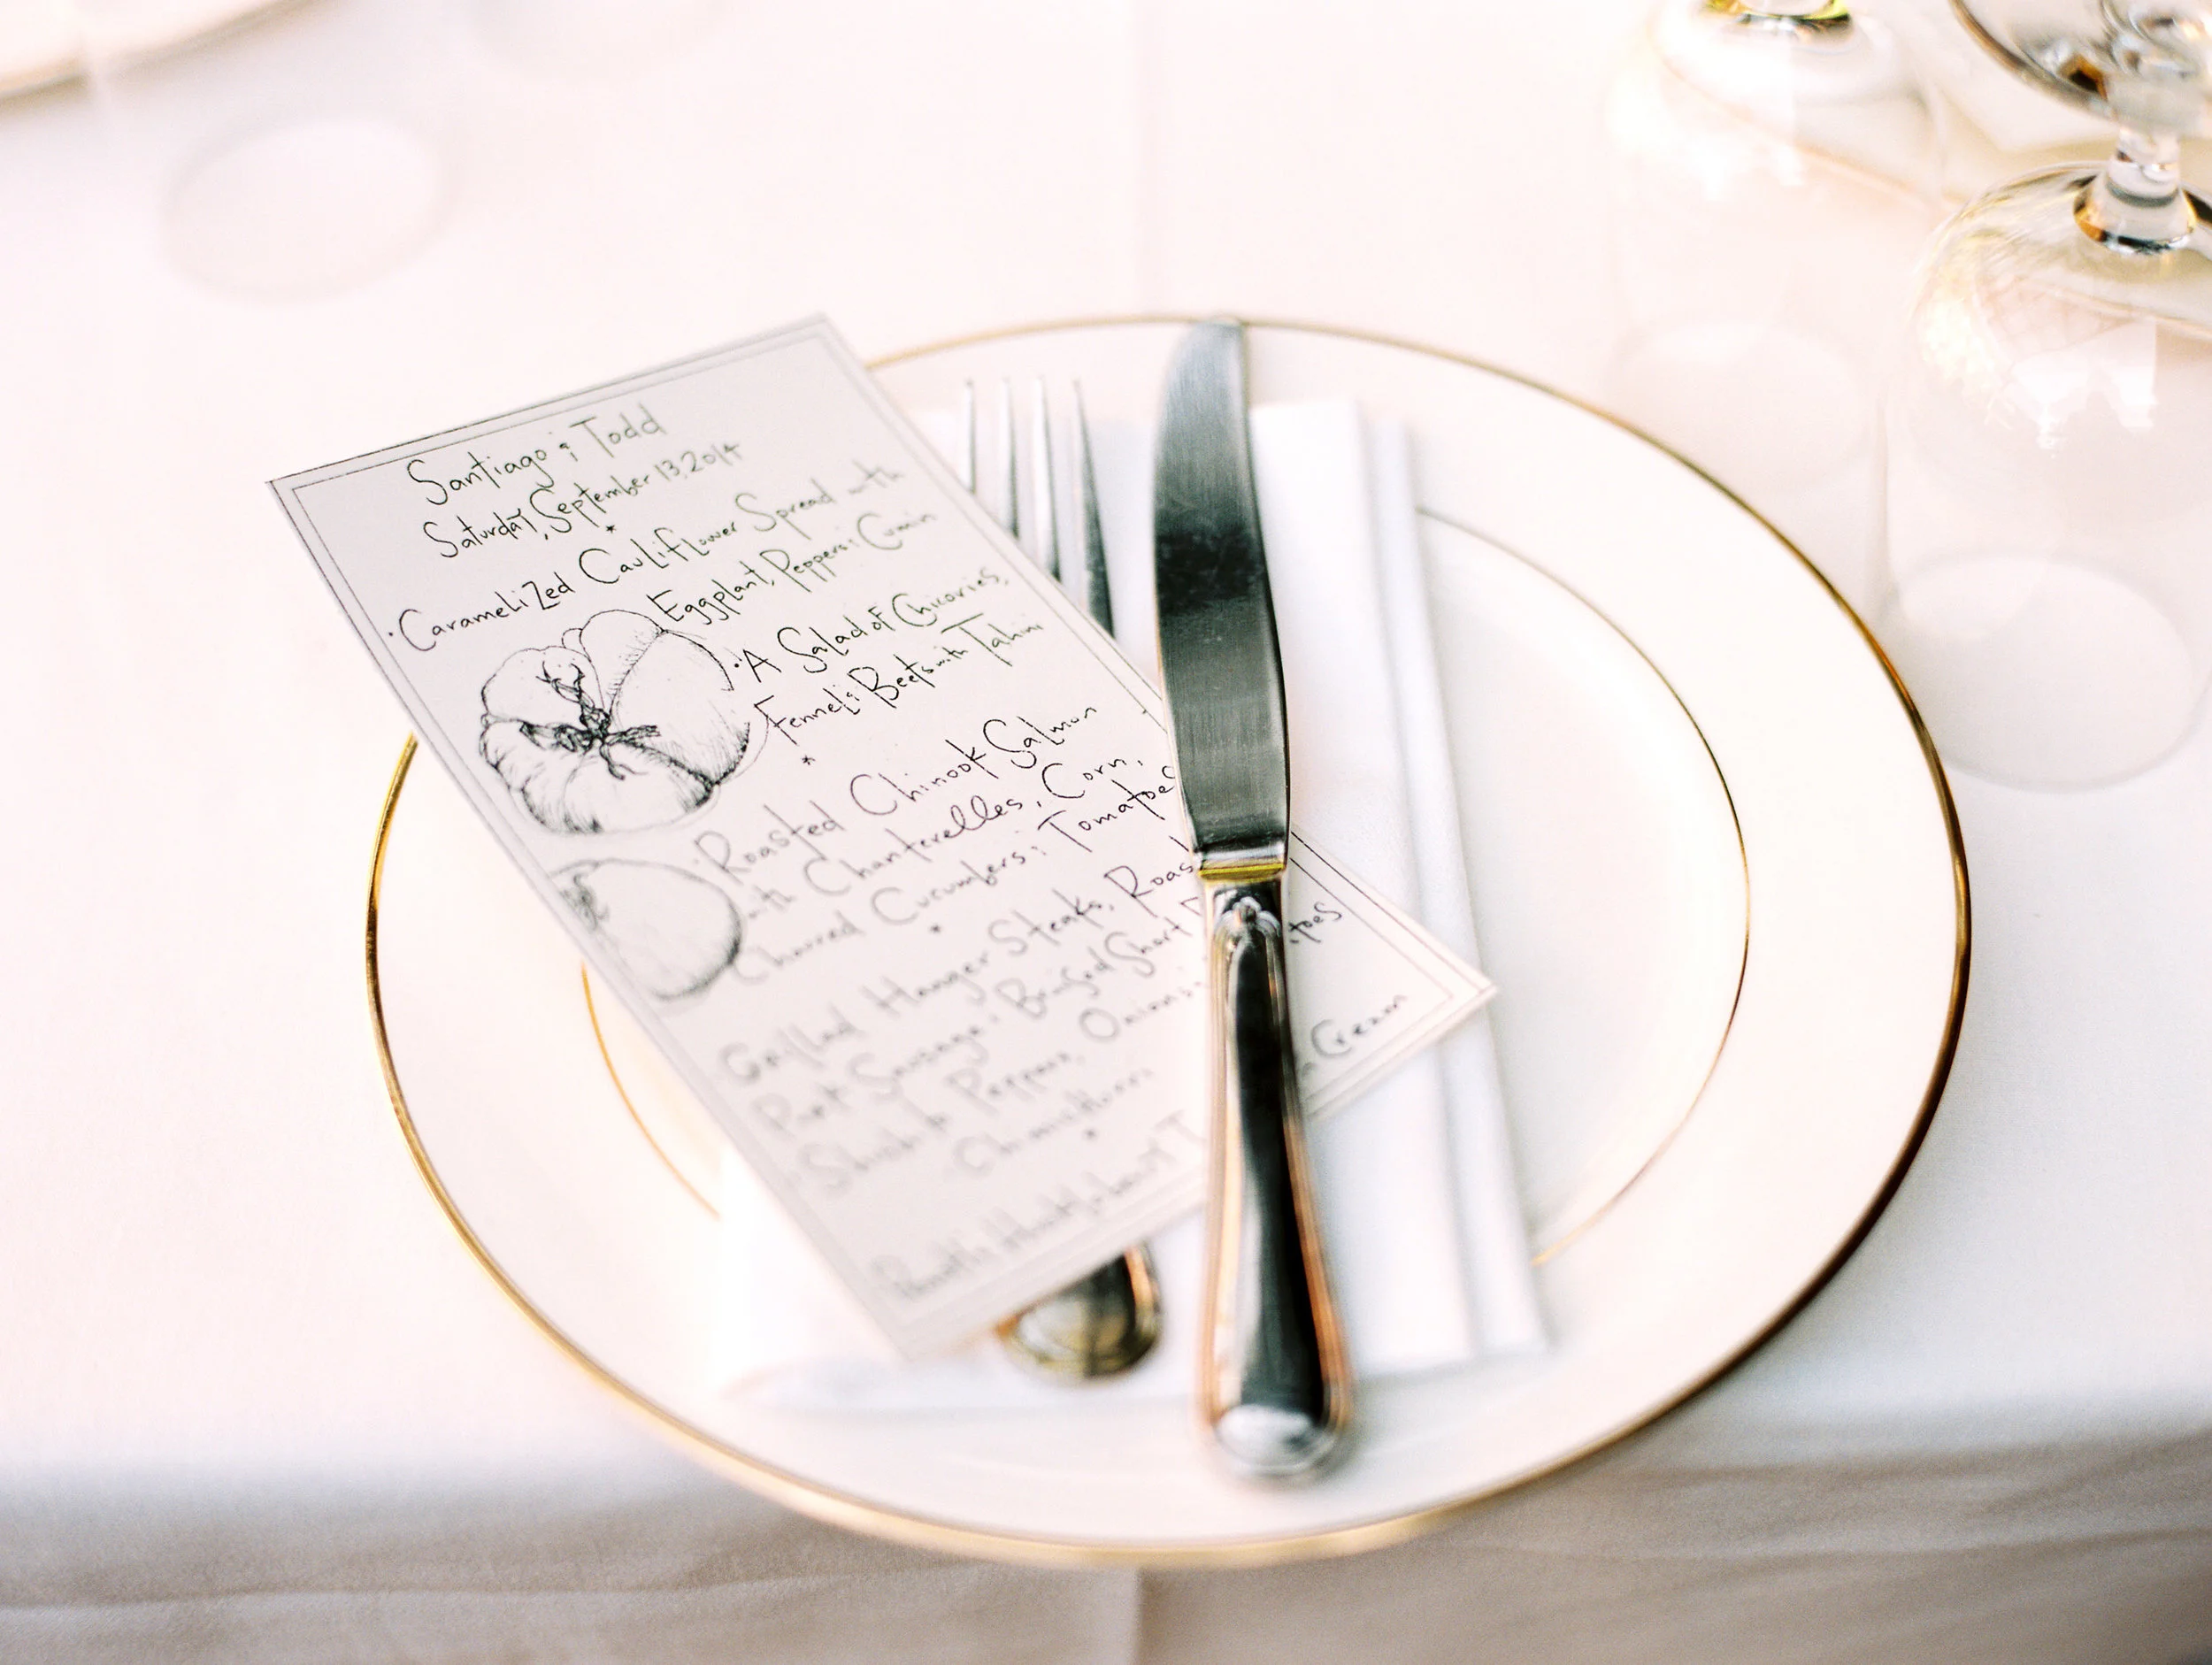 Santiago & Todd
Saturday, September 13, 2014
*
·Caramelized Cauliflower Spread with
Eggplant, Peppers & Cumin
·A Salad of Chicories,
Fennel & Beets with Tahini
*
·Roasted Chinook Salmon
with Chanterelles, Corn,
Charred Cucumbers & Tomatoe
*
Grilled Hanger Steaks, Roast
Sausage & Braised Short
toes
Shishito Peppers, Onions &
Chimichurri
*
Cream